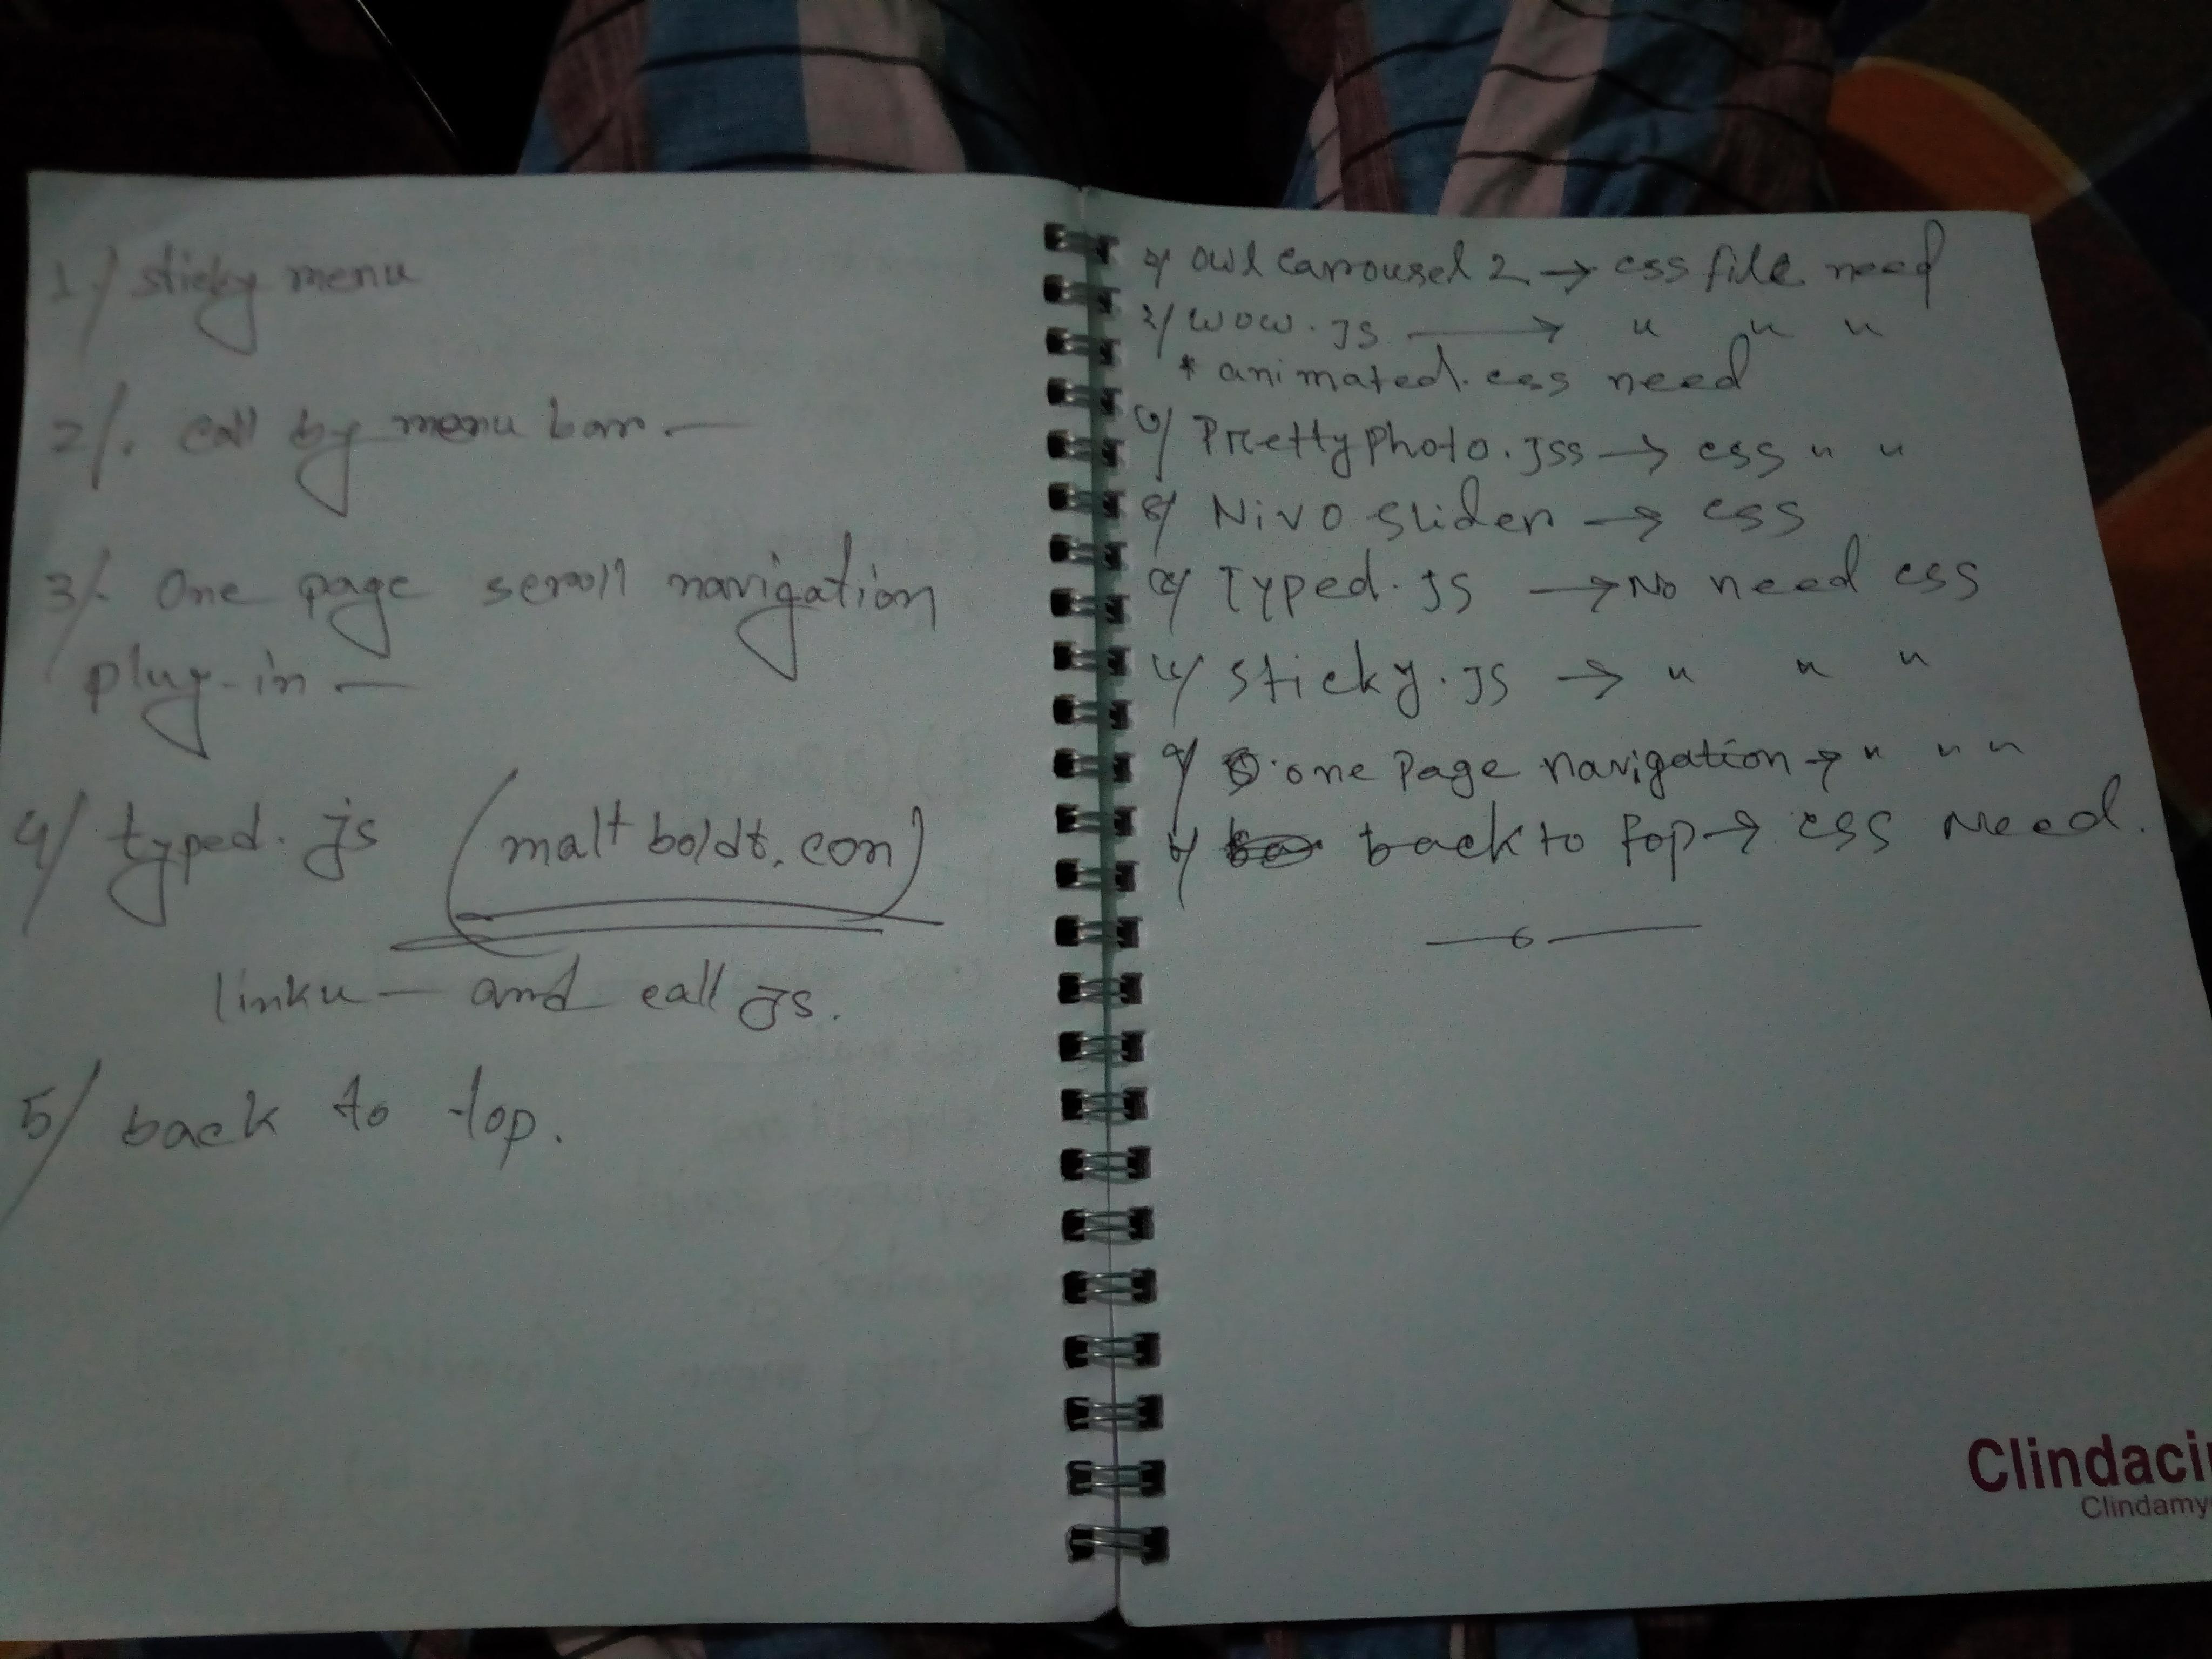 1/ sticky menu
2/. call by menu bar. —
3/. One page scroll navigation
plug-in —
4/ typed. js (malt boldt. con)
linku — and call js.
5/ back to top.
১/ owl carrousel 2 → css file need
২/ wow. JS → " " "
* animated. css need
৩/ Prettyphoto. Jss → css " "
৪/ Nivo slider → css
৫/ Typed. JS → No need css
৬/ sticky. JS → " " "
৭/ one page navigation → " " "
৮/ back to top → css Need.
Clindaci
Clindamy